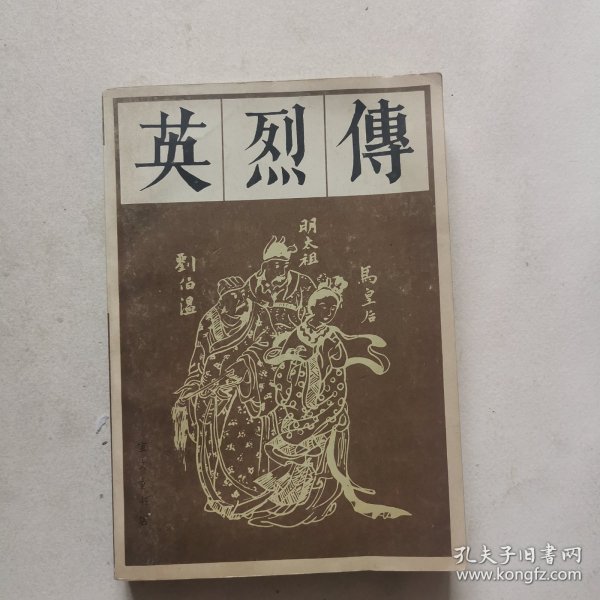 英烈傳
明太祖
劉伯温
馬皇后
孔夫子旧書网
www.kongfz.com